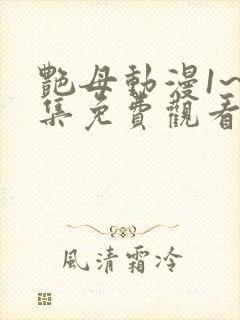 艷母動漫1~
集免費觀看
風清霜冷